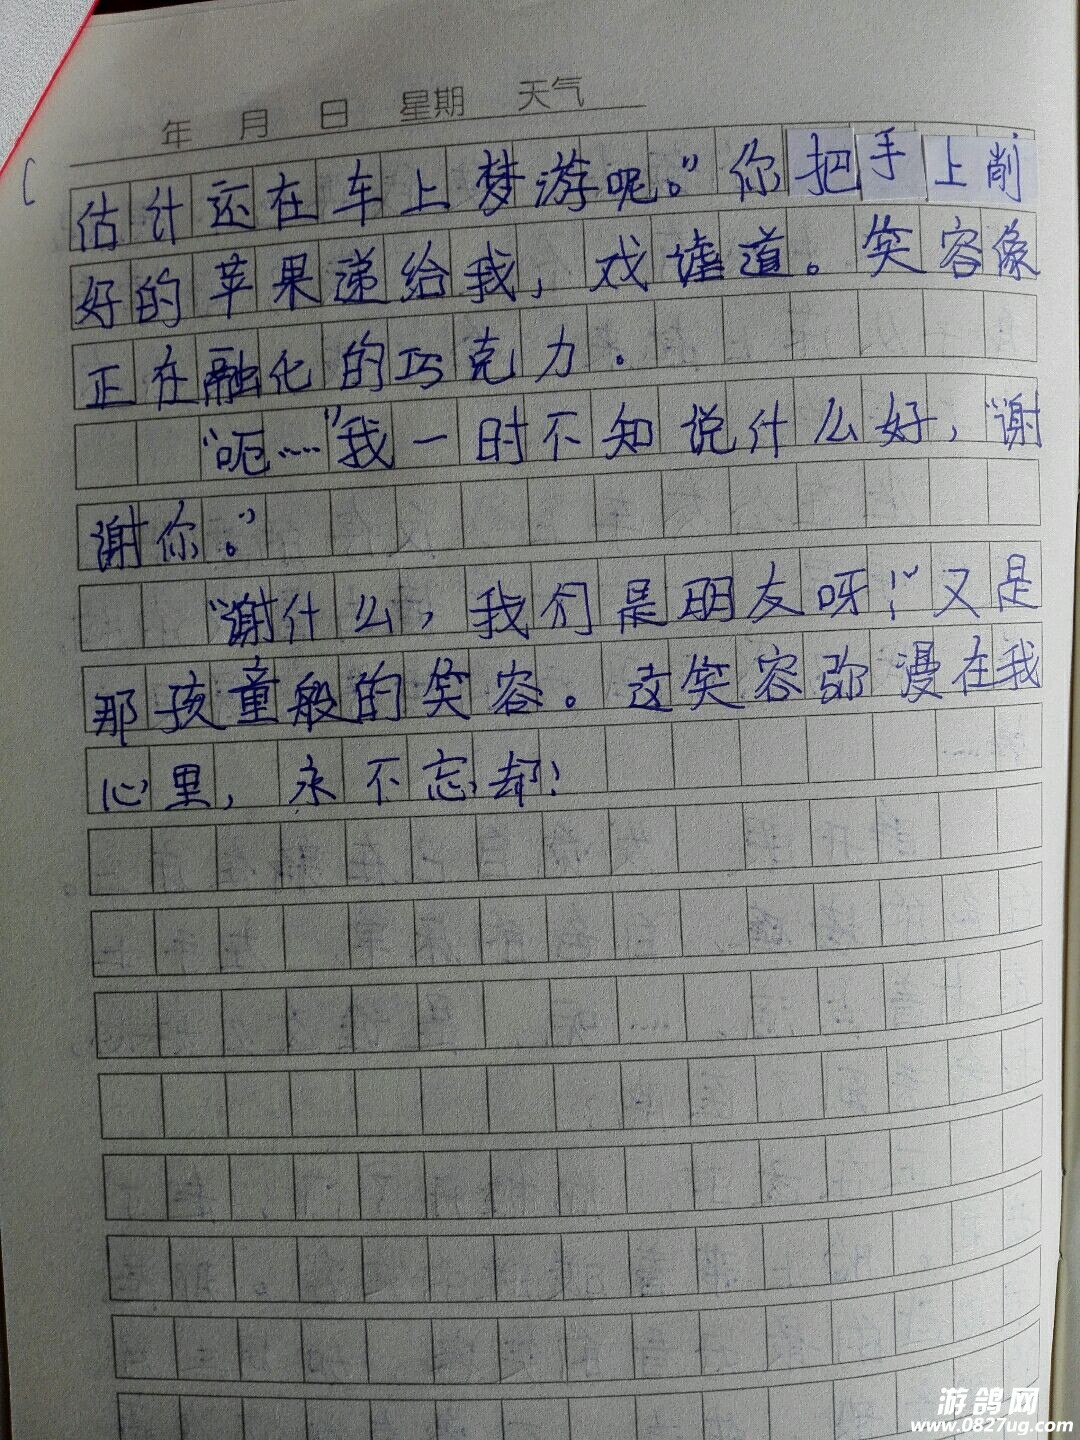 年 月 日 星期 天气
估计还在车上梦游呢。”你把手上削
好的苹果递给我，戏谑道。笑容像
正在融化的巧克力。
“呃……”我一时不知说什么好，“谢
谢你。”
“谢什么，我们是朋友呀！”又是
那孩童般的笑容。这笑容弥漫在我
心里，永不忘却！
游鸽网
www.0827ug.com